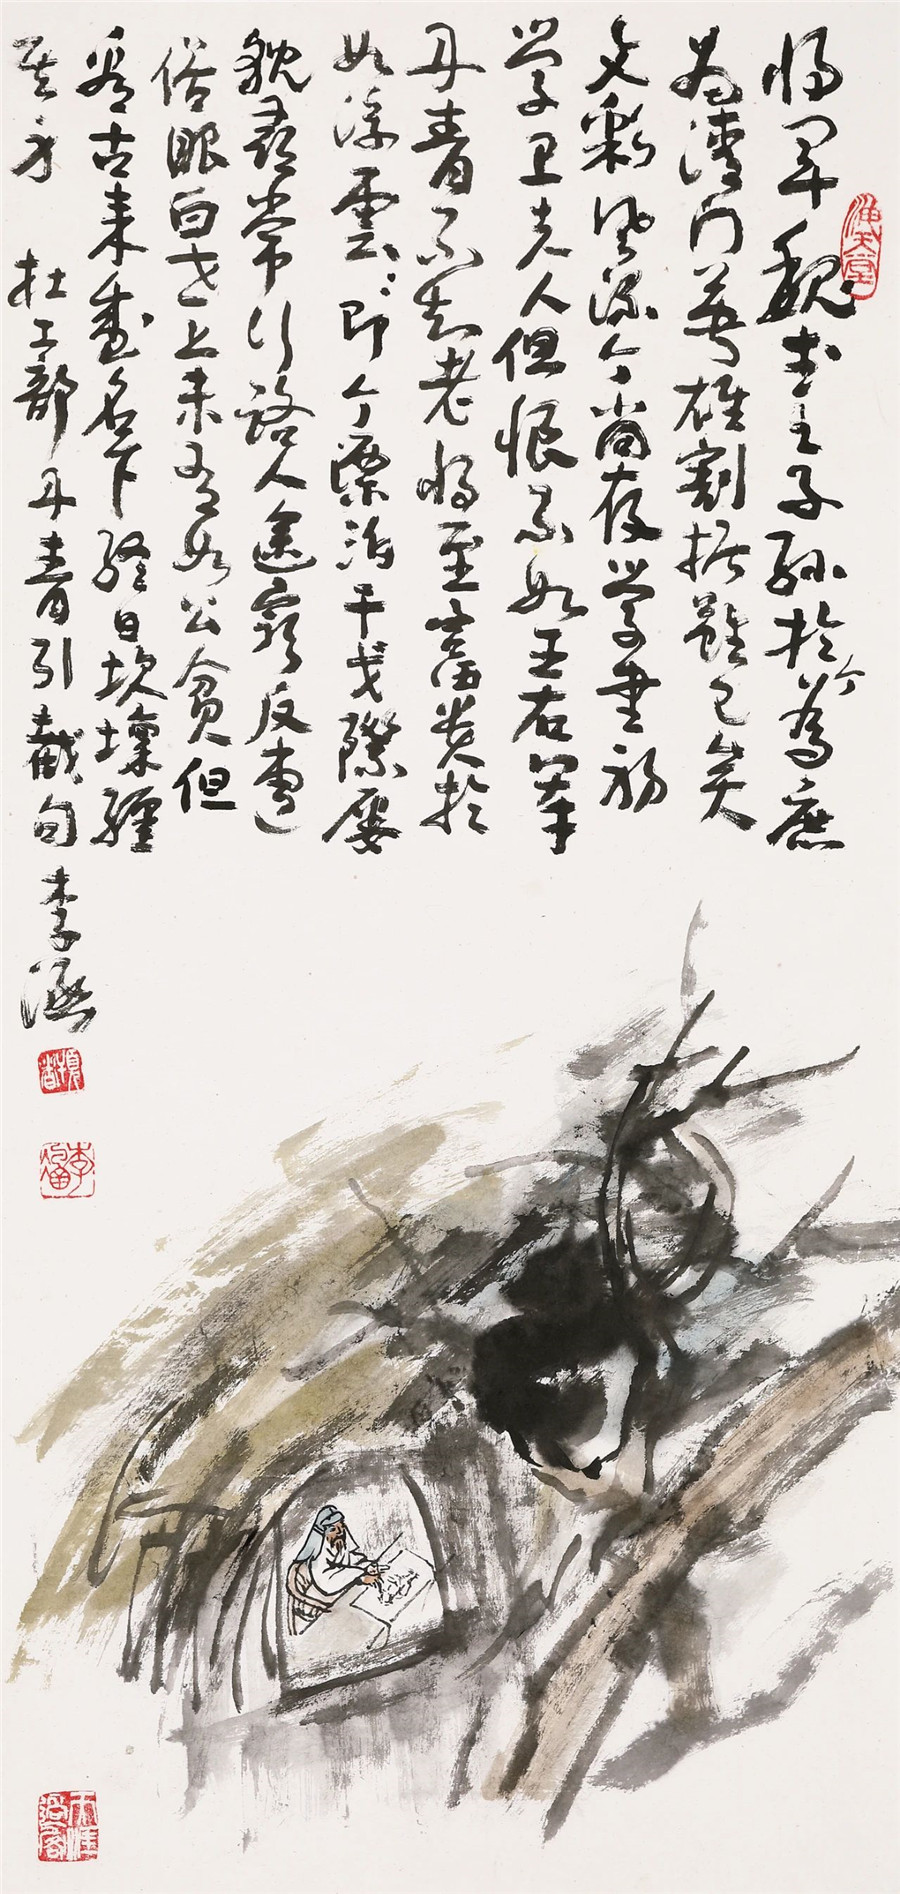 将军魏武之子孫於今為庶
為清门英雄割据雖已矣
文彩風流今尚存學書初
學卫夫人但恨不如王右军
丹青不知老将至富贵於
如浮雲即今漂泊干戈際屢
貌尋常行路人途窮反遭
俗眼白世上未有如公貧但
看古来盛名下終日坎壈纏
其身 杜工部丹青引截句 李涵
李涵
天涯過客